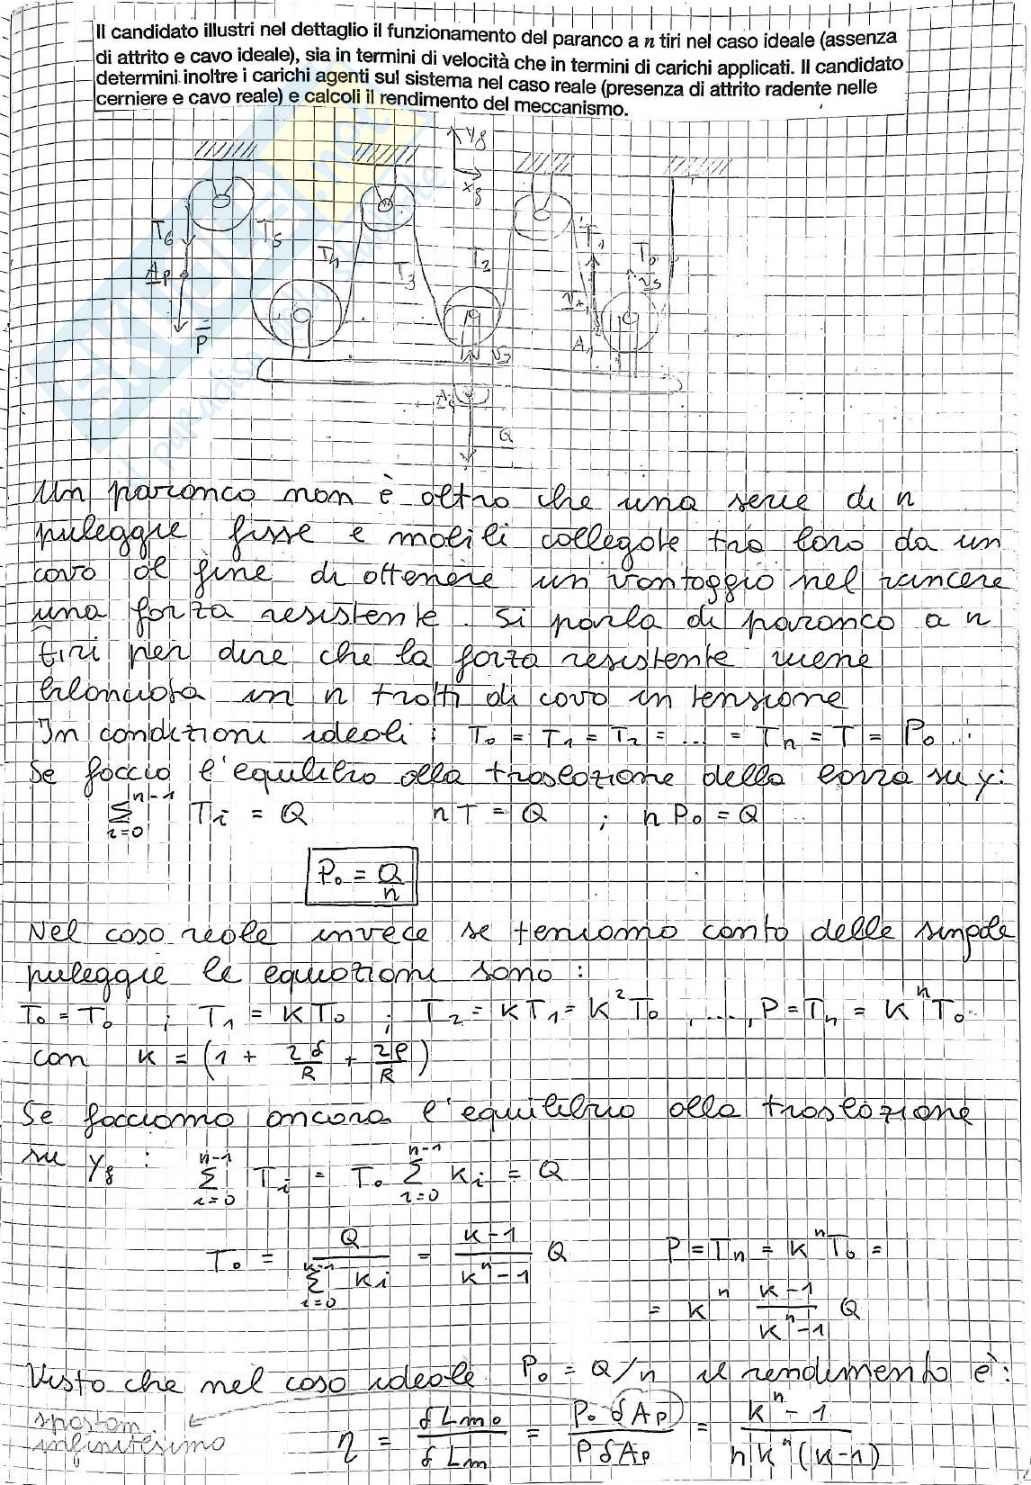 Il candidato illustri nel dettaglio il funzionamento del paranco a n tiri nel caso ideale (assenza
di attrito e cavo ideale), sia in termini di velocità che in termini di carichi applicati. Il candidato
determini inoltre i carichi agenti sul sistema nel caso reale (presenza di attrito radente nelle
cerniere e cavo reale) e calcoli il rendimento del meccanismo.
y_g
x_g
T_6 T_5 T_4 T_3 T_2 T_1 T_0
A_P
P
A_1
Q
Un paranco non è altro che una serie di n
pulegge fisse e mobili collegate tra loro da un
cavo al fine di ottenere un vantaggio nel vincere
una forza resistente. Si parla di paranco a n
tiri per dire che la forza resistente viene
bilanciata in n tratti di cavo in tensione
In condizioni ideali: T_0 = T_1 = T_2 = ... = T_n = T = P_0
Se faccio l'equilibrio alla traslazione della barra su y:
∑_{i=0}^{n-1} T_i = Q nT = Q ; nP_0 = Q
P_0 = Q/n
Nel caso reale invece se teniamo conto delle singole
pulegge le equazioni sono:
T_0 = T_0 ; T_1 = KT_0 ; T_2 = KT_1 = K^2 T_0 , ..., P = T_n = K^n T_0
con K = (1 + 2δ/R + 2ρ/R)
Se facciamo ancora l'equilibrio alla traslazione
su y_g : ∑_{i=0}^{n-1} T_i = T_0 ∑_{i=0}^{n-1} K_i = Q
T_0 = Q / ∑_{i=0}^{n-1} K_i = (K-1)/(K^n-1) Q P = T_n = K^n T_0 =
= K^n (K-1)/(K^n-1) Q
Visto che nel caso ideale P_0 = Q/n il rendimento è:
spostam.
infinitesimo
η = δL_{m0}/δL_m = P_0 δA_P / P δA_P = (K^n-1) / nK^n(K-n)